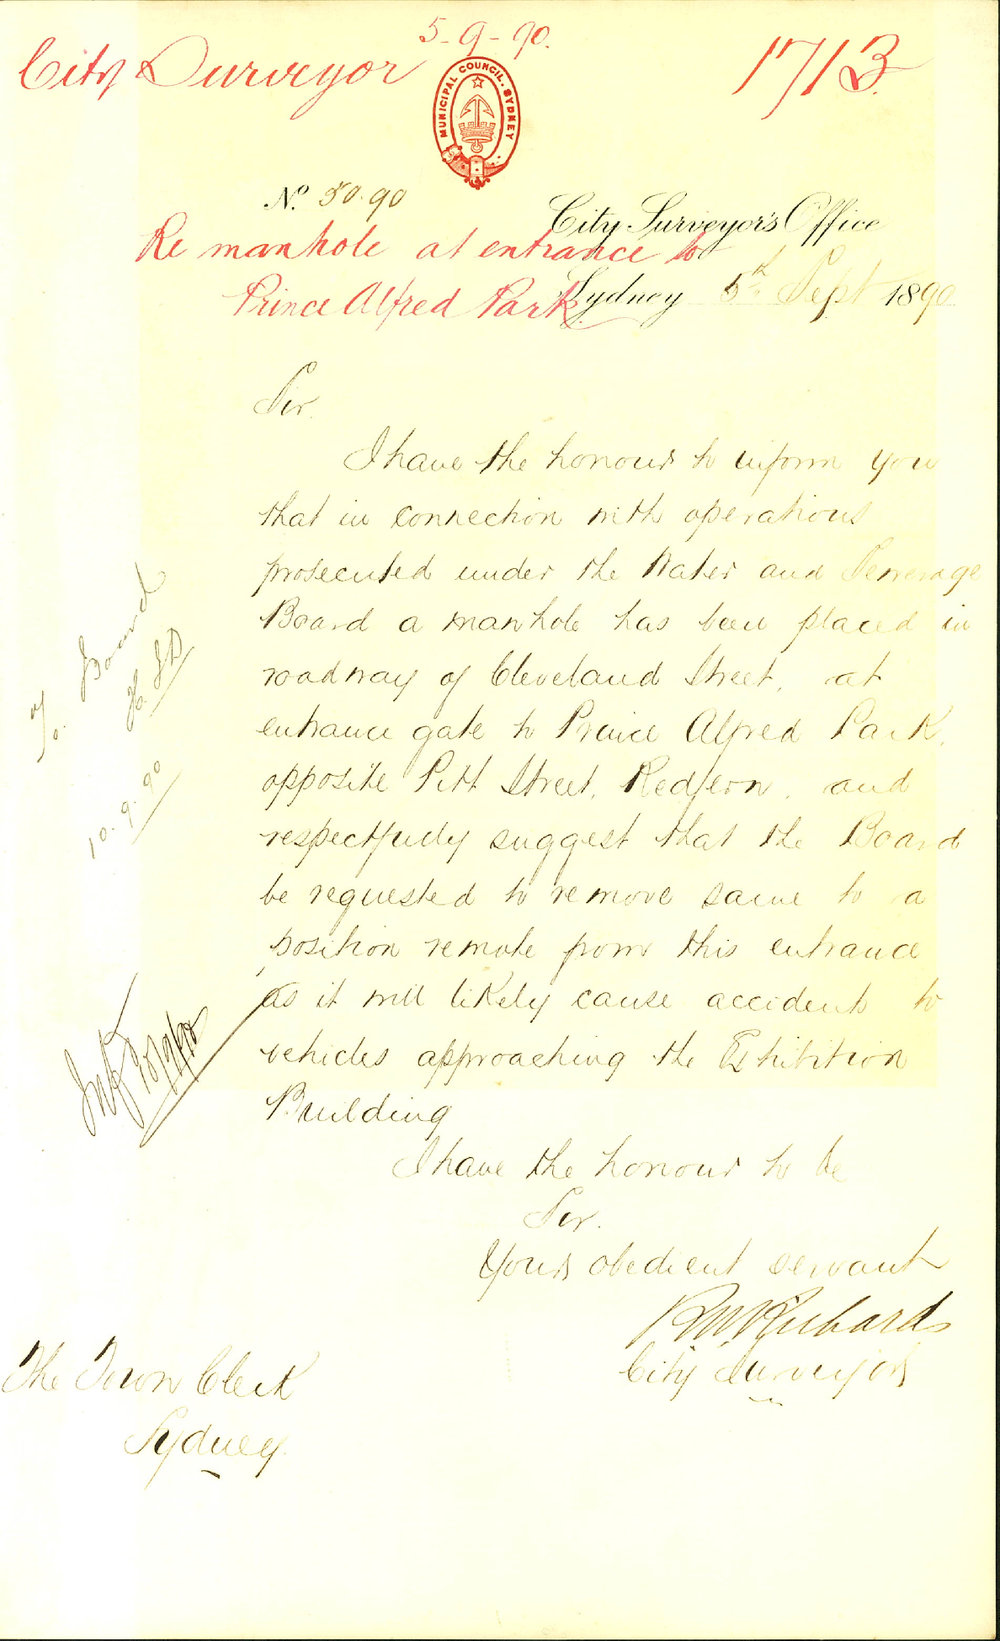 5-9-90.
City Surveyor
1713.
MUNICIPAL COUNCIL. SYDNEY
No. 50.90
City Surveyor's Office
Re manhole at entrance to
Prince Alfred Park
Sydney 5th Sept 1890
Sir.
I have the honour to inform you
that in connection with operations
prosecuted under the Water and Sewerage
Board a manhole has been placed in
roadway of Cleveland Street, at
entrance gate to Prince Alfred Park,
opposite Pitt Street, Redfern, and
respectfully suggest that the Board
be requested to remove same to a
position remote from this entrance
as it will likely cause accidents to
vehicles approaching the Exhibition
Building
I have the honour to be
Sir.
Yours obedient servant
R W Richards
City Surveyor
The Town Clerk
Sydney.
To Board
10.9.90